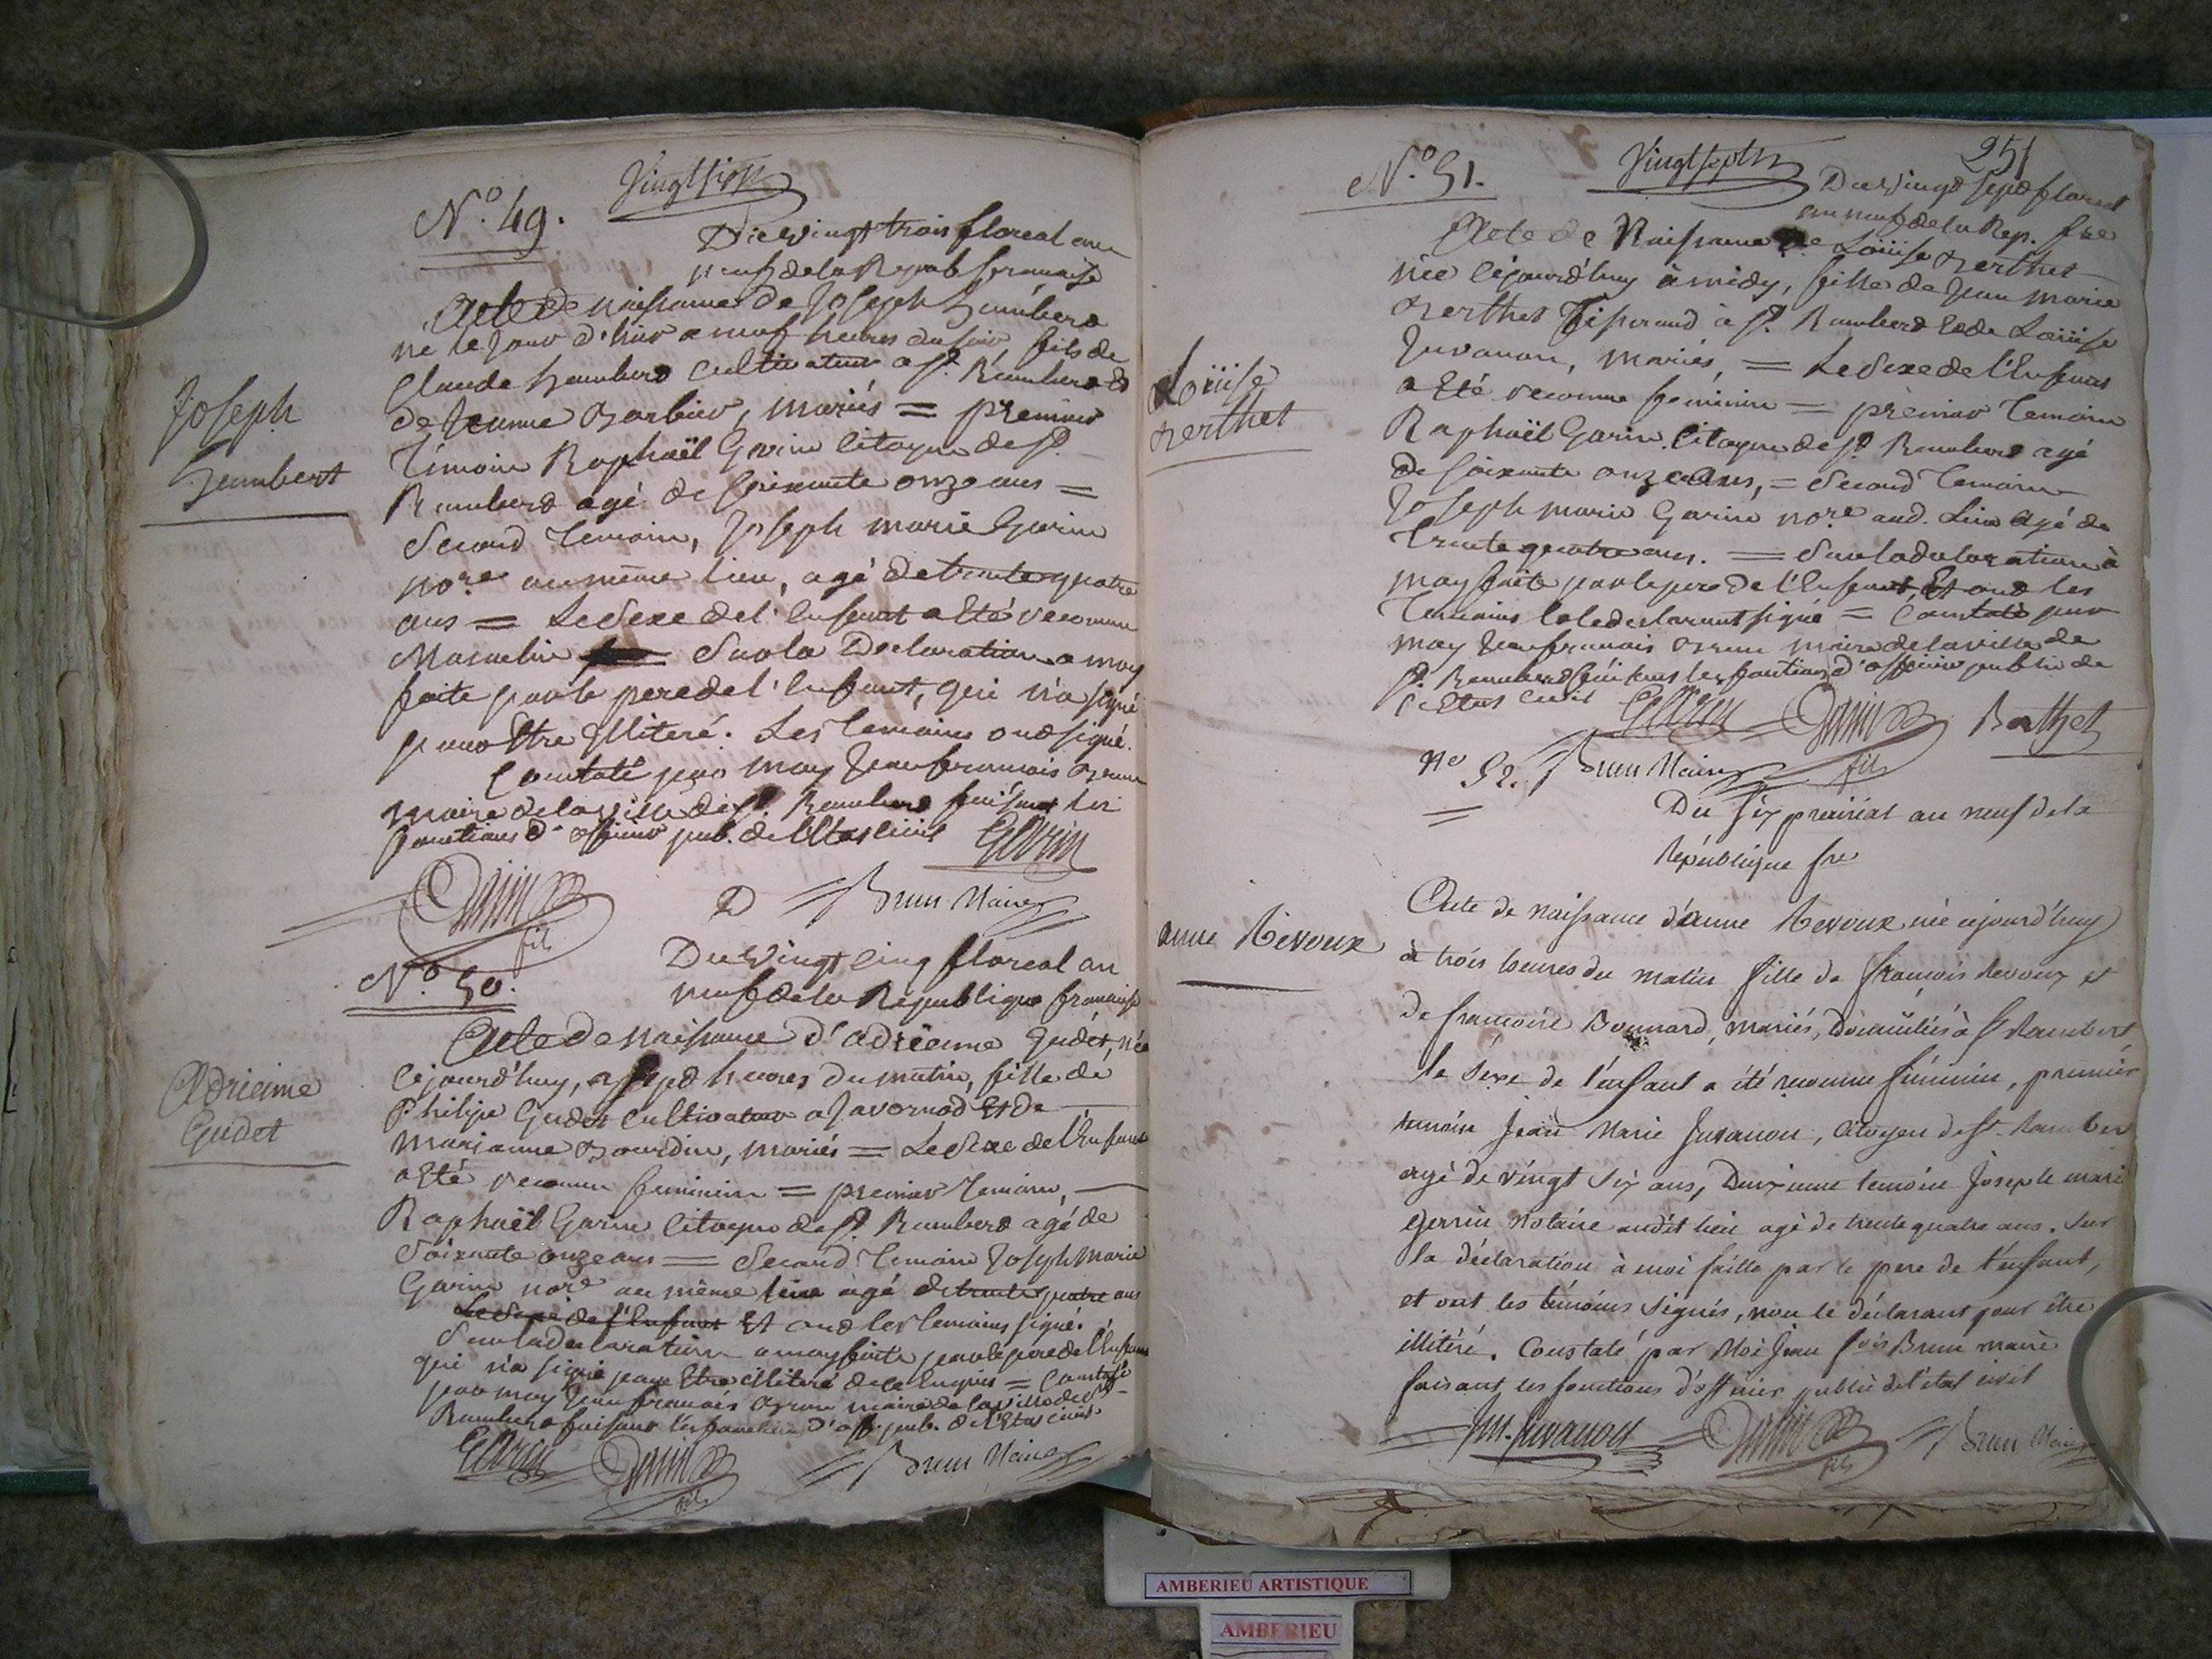 Vingt six
N.º 49.
Du vingt trois floreal an
neuf de la Repub francaise
Acte de naissance de Joseph humbert
né le jour d'hier a neuf heures du soir fils de
Claude humbert cultivateur a St. Rambert &
de Jeanne Barbier, mariés = premier
Témoin Raphaël Garin Citoyen de St.
Rambert agé de soixante onze ans =
Second Temoin, Joseph marie Garin
no.re au même lieu, agé de trente quatre
ans = Le Sexe de l'enfant a Eté reconnu
Masculin Sur la Declaration a moy
faite par le pere de l'enfant, qui n'a signé
pour Etre Illiteré. Les temoins ond signé.
Constaté par moy Jean francois Brun
maire de la ville de St. Rambert faisant les
fonctions d'officier pub. de l'Etat civil
Joseph
humbert
Garin
Garin
fils
Brun Maire
N.º 50.
Du Vingt cinq floreal an
neuf de la République francaise
Acte de naissance d'adrienne Gudet, née
cejourd'huy, a sept heures du matin, fille de
Philipe Gudet Cultivateur a Javornod Et de
Marianne Bourdin, mariés = Le Sexe de l'Enfant
a Eté reconnu feminin = premier temoin,
Raphaël Garin Citoyen de St. Rambert agé de
Soixante onze ans = Second Temoin Joseph Marie
Garin no.re au même lieu agé de trente quatre ans
Le Sexe de l'Enfant Et ond les temoins signé.
Sur la declaration a moy faite par le pere de l'Enfant
qui n'a signé pour Etre illiteré de ce Enquis = Constaté
par moy Jean francois Brun maire de la ville de St.
Rambert faisant les fonctions d'off. pub. de l'Etat civil
Adrienne
Gudet
Garin
Garin
fils
Brun Maire
251
N.º 51.
Vingt sept
Du Vingt sept floreal
an neuf de la Rep. fse
Acte de Naissance de Loüise Berthet
née cejourd'huy à midy, fille de Jean Marie
Berthet Tisserand à St. Rambert & de Loüise
Juvanon, mariés, = Le Sexe de l'Enfant
a Eté reconnu feminin = premier temoin
Raphaël Garin, Citoyen de St. Rambert agé
de soixante onze ans, = Second temoin
Joseph marie Garin no.re aud. Lieu agé de
Trente quatre ans. = Sur la declaration à
moy faite par le pere de l'Enfant, Et ond les
Temoins & le declarant signé = Constaté par
moy Jean francois Brun maire de la ville de
St. Rambert faisant les fonctions d'officier public de
l'Etat civil
Loüise
Berthet
Garin
Garin
fils
Berthet
Brun Maire
No 52.
Du six prairial an neuf de la
République fse
Acte de naissance d'anne Revoux née cejourd'huy
à trois heures du matin fille de françois Revoux et
de françoise Bonnard, mariés, Domiciliés à St Rambert,
le sexe de l'enfant a été reconnu féminin, premier
temoin Jean Marie Juvanon, citoyen de St. Rambert
agé de vingt six ans, Deuxieme temoin Joseph marie
Garin Notaire audit lieu agé de trente quatre ans. sur
la déclaration à moi faitte par le pere de l'enfant,
et ont les témoins signés, non le déclarant pour être
illitéré. Constaté par Moi Jean fois Brun maire
faisant les fonctions d'officier public de l'état civil
anne Revoux
JM. Juvanon
Garin
fils
Brun Maire
AMBERIEU ARTISTIQUE
AMBERIEU